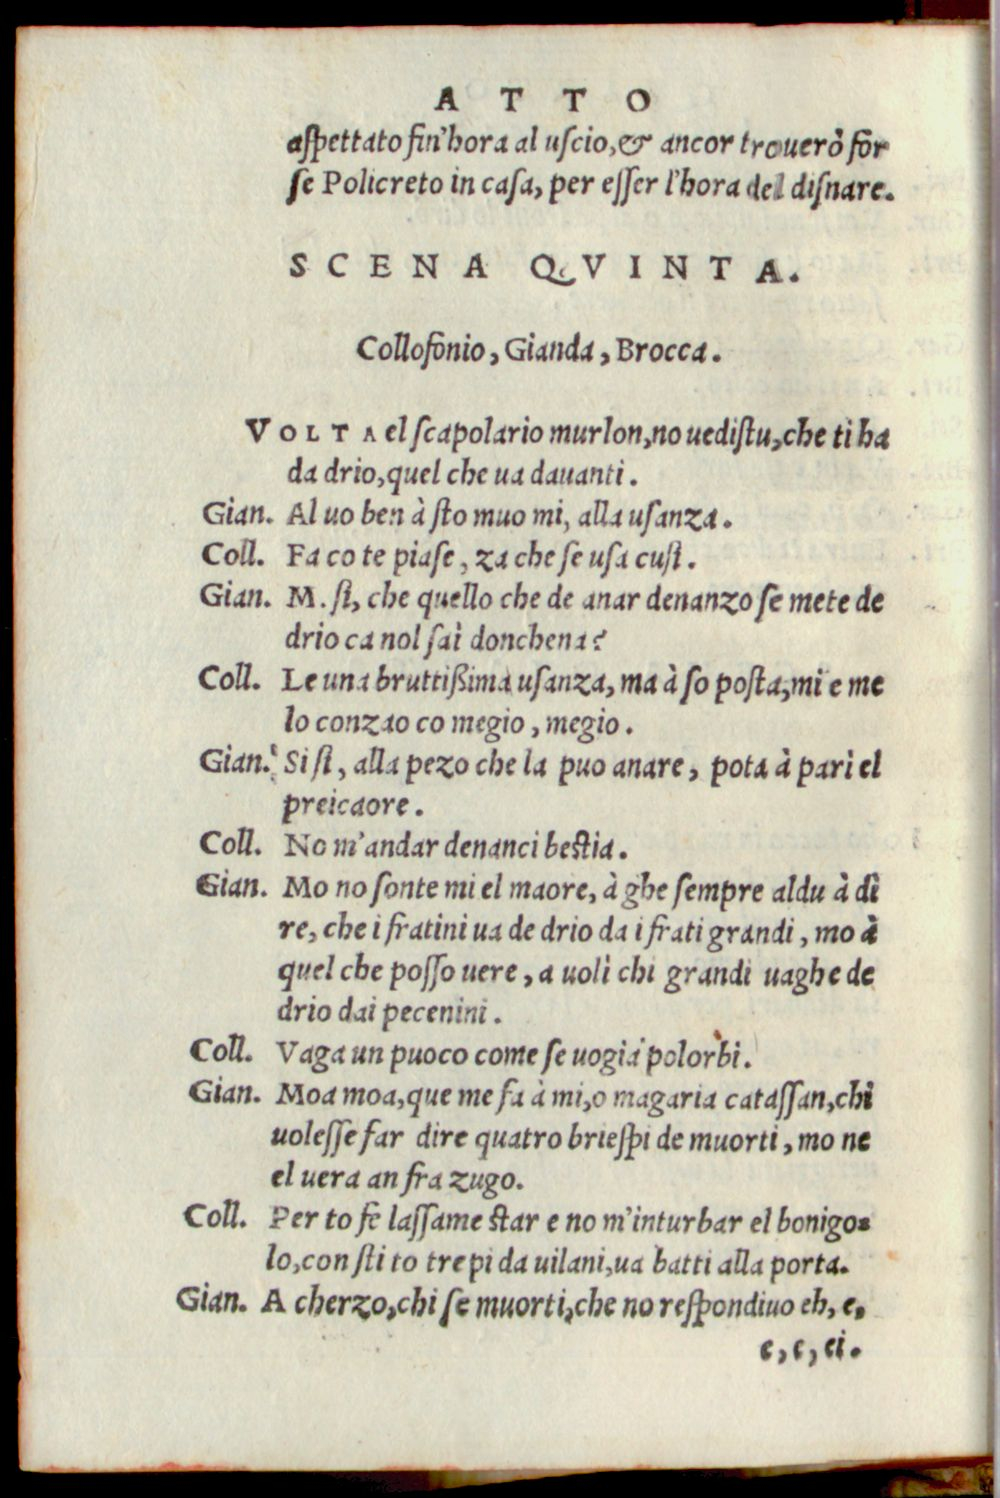 A T T O
aſpettato fin'hora al uſcio, & ancor trouerò for
ſe Policreto in caſa, per eſſer l'hora del diſnare.
S C E N A  Q V I N T A.
Collofonio, Gianda, Brocca.
V O L T A el ſcapolario murlon, no uediſtu, che ti ha
da drio, quel che ua dauanti.
Gian. Al uo ben à ſto muo mi, alla uſanza.
Coll. Fa co te piaſe, za che ſe uſa cuſi.
Gian. M. ſi, che quello che de anar denanzo ſe mete de
drio ca nol ſaì donchena?
Coll. Le una bruttißima uſanza, ma à ſo poſta, mi e me
lo conzao co megio, megio.
Gian. Si ſi, alla pezo che la puo anare, pota à parì el
preicaore.
Coll. No m'andar denanci beſtia.
Gian. Mo no ſonte mi el maore, à ghe ſempre aldu à dì
re, che i fratini ua de drio da i frati grandi, mo à
quel che poſſo uere, a uolì chi grandi uaghe de
drio dai pecenini.
Coll. Vaga un puoco come ſe uogia polorbi.
Gian. Moa moa, que me fa à mi, o magaria cataſſan, chi
uoleſſe far dire quatro brieſpi de muorti, mo ne
el uera an fra zugo.
Coll. Per to fe laſſame ſtar e no m'inturbar el bonigo=
lo, con ſti to trepi da uilani, ua batti alla porta.
Gian. A cherzo, chi ſe muorti, che no reſpondiuo eh, e,
e, e, ei.